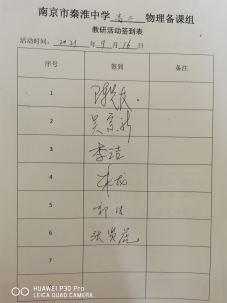 南京市秦淮中学高二物理备课组
教研活动签到表
活动时间：2021年9月16日
序号 签到 备注
1
2 吴京新
3 李洁
4
5
6 张贤芳
HUAWEI P30 Pro
LEICA QUAD CAMERA